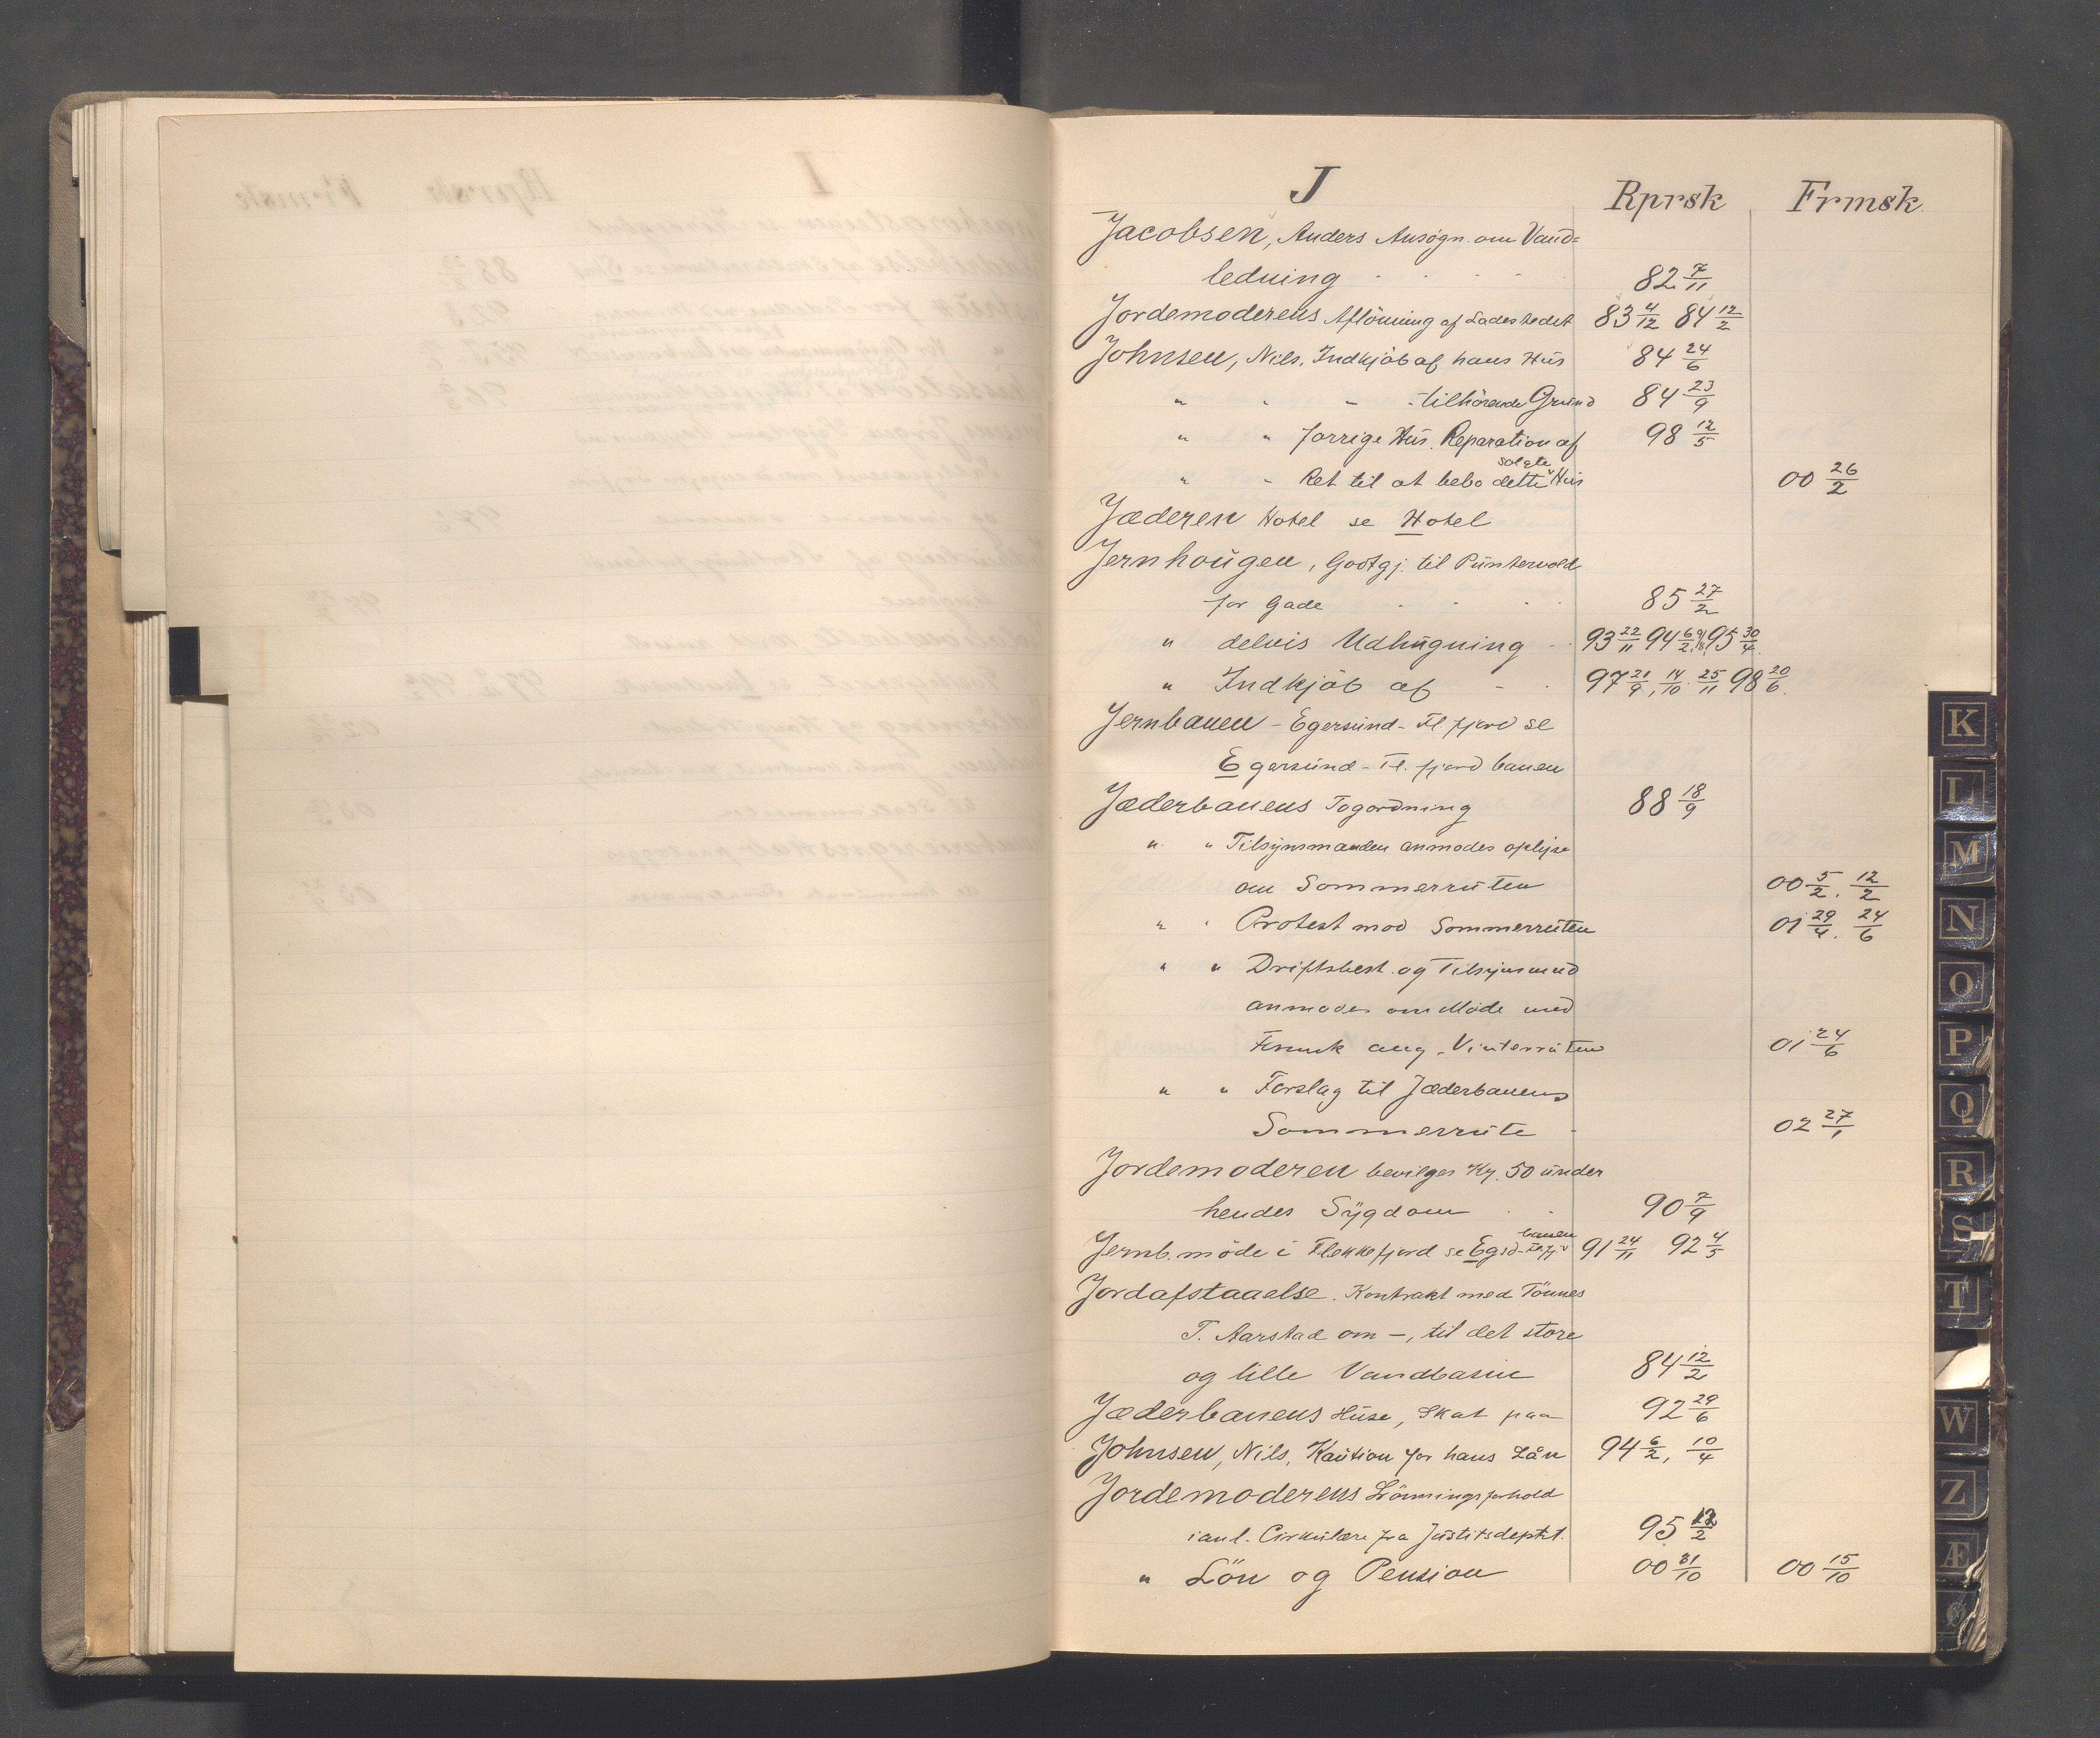 J Rprsk Frmsk.
Jacobsen, Anders Ansøgn. om Vand=
ledning 82 7/11
Jordemoderens Aflönning af Ladestedet 83 4/12 84 12/2
Johnsen, Nils, Indkjöb af hans Hus 84 24/6
" " - tilhörende Grund 84 23/9
" " forrige Hus. Reparation af 98 12/5
" " Ret til at bebo dette solgte Hus 00 26/2
Jæderen Hotel se Hotel
Jernhougen, Godtgj. til Puntervold
for Gade 85 27/2
" delvis Udhugning 93 22/11 94 6/2, 95 30/4.
" Indkjöb af - 97 21/9, 14/10. 25/11 98 20/6.
Jernbanen - Egersund - Fl. fjord se
Egersund - Fl. fjord banen
Jæderbanens Togordning 88 18/9
" " Tilsynsmanden anmodes oplyse
om Sommerruten 00 5/2. 12/2
" " Protest mod Sommerruten 01 29/4. 24/6
" " Driftsbest. og Tilsynsmd
anmodes om Möde med
Frmsk ang. Vinterruten 01 24/6
" " Forslag til Jæderbanens
Sommerrute 02 27/1
Jordemoderen bevilges Kr. 50 under
hendes Sygdom 90 7/9
Jernb. möde i Flekkefjord se Egsd-Fl.fj. banen 91 24/11 92 4/5
Jordafstaaelse. Kontrakt med Tönnes
T. Aarstad om -, til det store
og lille Vandbasin 84 12/2
Jæderbanens Huse, Skat paa 92 29/6
Johnsen, Nils, Kaution for hans Lån 94 6/2, 10/4
Jordemoderens Lönningsforhold
i anl. Cirkulære fra Justitsdeptet. 95 12/2
" Lön og Pension 00 31/10 00 15/10
K
L
M
N
O
P
Q
R
S
T
W
Z
Æ
Ø